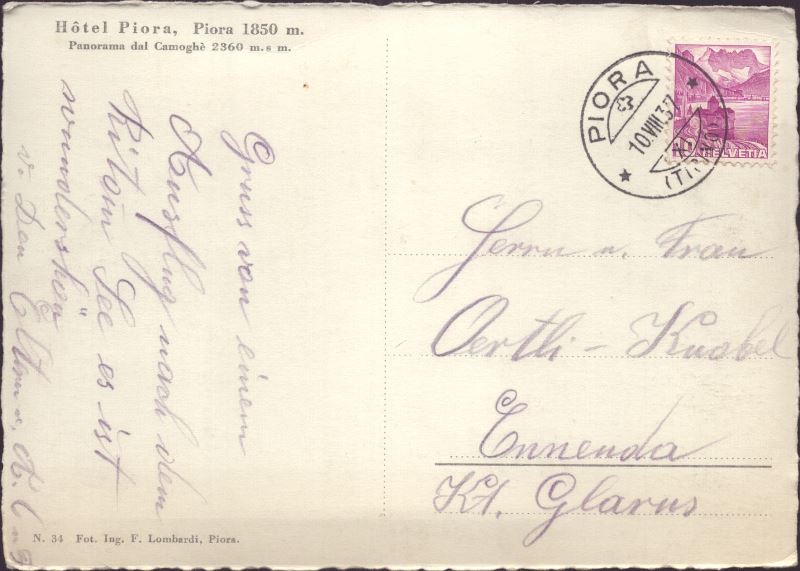 Hôtel Piora, Piora 1850 m.
Panorama dal Camoghè 2360 m. s m.
Gruss von einem
Ausflug nach dem
Ritom See es ist
wundershön
v. Den Eltern u.
PIORA
10.VIII.37
HELVETIA
Herrn u. Frau
Oertli - Knobel
Ennenda
Kt. Glarus
N. 34 Fot. Ing. F. Lombardi, Piora.